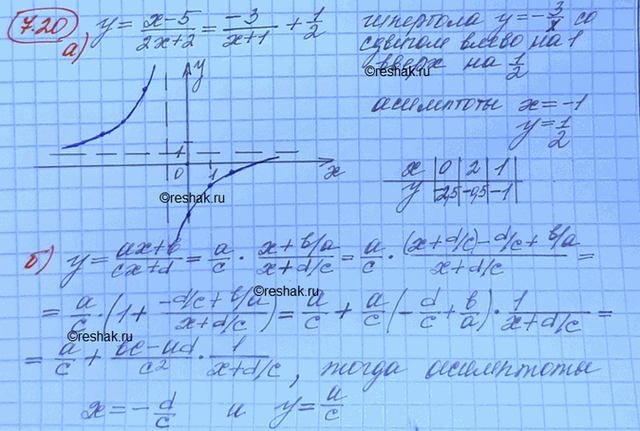 7.20
а) y = (x-5)/(2x+2) = -3/(x+1) + 1/2
гипербола y = -3/x со
сдвигом влево на 1
вверх на 1/2
©reshak.ru
асимптоты x = -1
y = 1/2
y
1
0 1 x
x | 0 | 2 | 1
y | -2,5 | -0,5 | -1
©reshak.ru
б) y = (ax+b)/(cx+d) = a/c · (x+b/a)/(x+d/c) = a/c · ((x+d/c)-d/c+b/a)/(x+d/c) =
= a/c · (1 + (-d/c+b/a)/(x+d/c)) = a/c + a/c (-d/c + b/a) · 1/(x+d/c) =
©reshak.ru
= a/c + (bc-ad)/c² · 1/(x+d/c), тогда асимптоты
x = -d/c и y = a/c
©reshak.ru